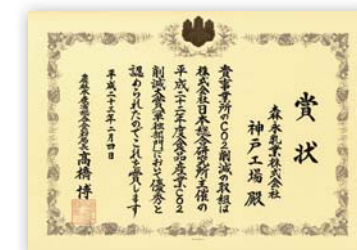 賞状
森永乳業株式会社
神戸工場 殿
貴事業所のCO2削減の取組は
株式会社日本総合研究所主催の
平成二十二年度食品産業CO2
削減大賞(単独部門)において優秀と
認められたのでこれを賞します
平成二十三年二月四日
農林水産省総合食料局長 高橋 博